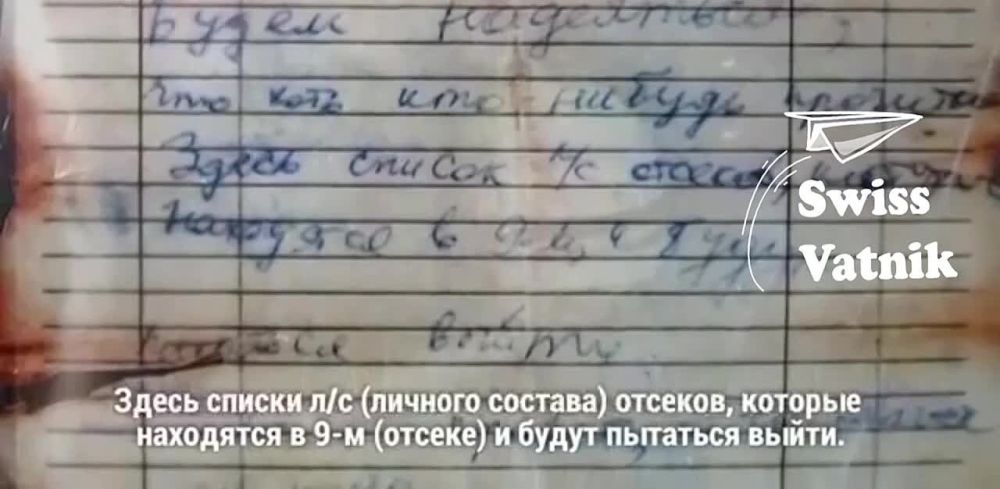 Будем надеяться,
что хоть кто нибудь прочитает
Здесь список л/с отсеков, которые
находятся в 9-м и будут
пытаться выйти.
Swiss
Vatnik
Здесь списки л/с (личного состава) отсеков, которые
находятся в 9-м (отсеке) и будут пытаться выйти.